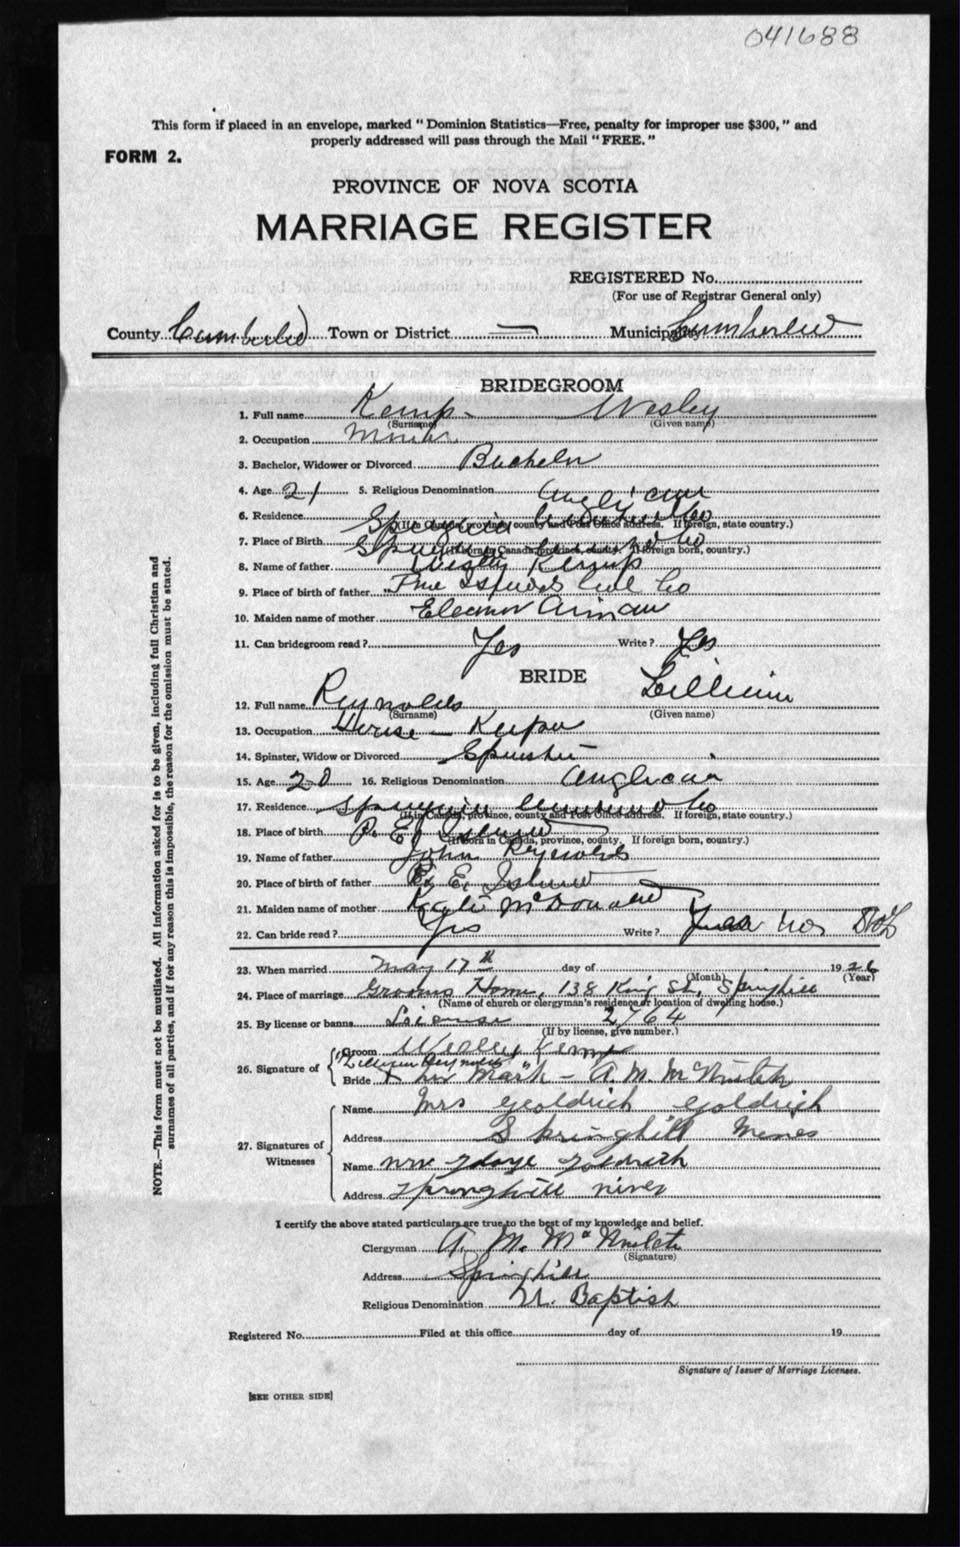 041688
This form if placed in an envelope, marked "Dominion Statistics—Free, penalty for improper use $300," and
properly addressed will pass through the Mail "FREE."
FORM 2.
PROVINCE OF NOVA SCOTIA
MARRIAGE REGISTER
REGISTERED No.
(For use of Registrar General only)
County Cumberland Town or District — Municipality Cumberland
BRIDEGROOM
1. Full name Kemp - Wesley
(Surname) (Given name)
2. Occupation
3. Bachelor, Widower or Divorced Bachelor
4. Age 21 5. Religious Denomination Anglican
6. Residence
(If in Canada, province, county and Post Office address. If foreign, state country.)
7. Place of Birth
(If born in Canada, province, county. If foreign born, country.)
8. Name of father Wesley Kemp
9. Place of birth of father
10. Maiden name of mother Eleanor
11. Can bridegroom read? Yes Write? Yes
BRIDE
12. Full name Reynolds Lillian
(Surname) (Given name)
13. Occupation House - Keeper
14. Spinster, Widow or Divorced Spinster
15. Age 20 16. Religious Denomination Anglican
17. Residence
(If in Canada, province, county and Post Office address. If foreign, state country.)
18. Place of birth P. E. Island
(If born in Canada, province, county. If foreign born, country.)
19. Name of father John Reynolds
20. Place of birth of father P. E. Island
21. Maiden name of mother McDonald
22. Can bride read? Yes Write?
23. When married May 17th day of 1926
(Month) (Year)
24. Place of marriage Grooms Home, 138 King St, Springhill
(Name of church or clergyman's residence or location of dwelling house.)
25. By license or banns License 2764
(If by license, give number.)
26. Signature of
Groom Wesley Kemp
"Lillian Reynolds"
Bride X her mark - A. M. McNintch
27. Signatures of Witnesses
Name Mrs Goldrich
Address Springhill Mines
Name
Address Springhill mines
I certify the above stated particulars are true to the best of my knowledge and belief.
Clergyman A. M. McNintch
(Signature)
Address Springhill
Religious Denomination U. Baptist
Registered No. Filed at this office day of 19
Signature of Issuer of Marriage Licenses.
[SEE OTHER SIDE]
NOTE.—This form must not be mutilated. All information asked for is to be given, including full Christian and
surnames of all parties, and if for any reason this is impossible, the reason for the omission must be stated.